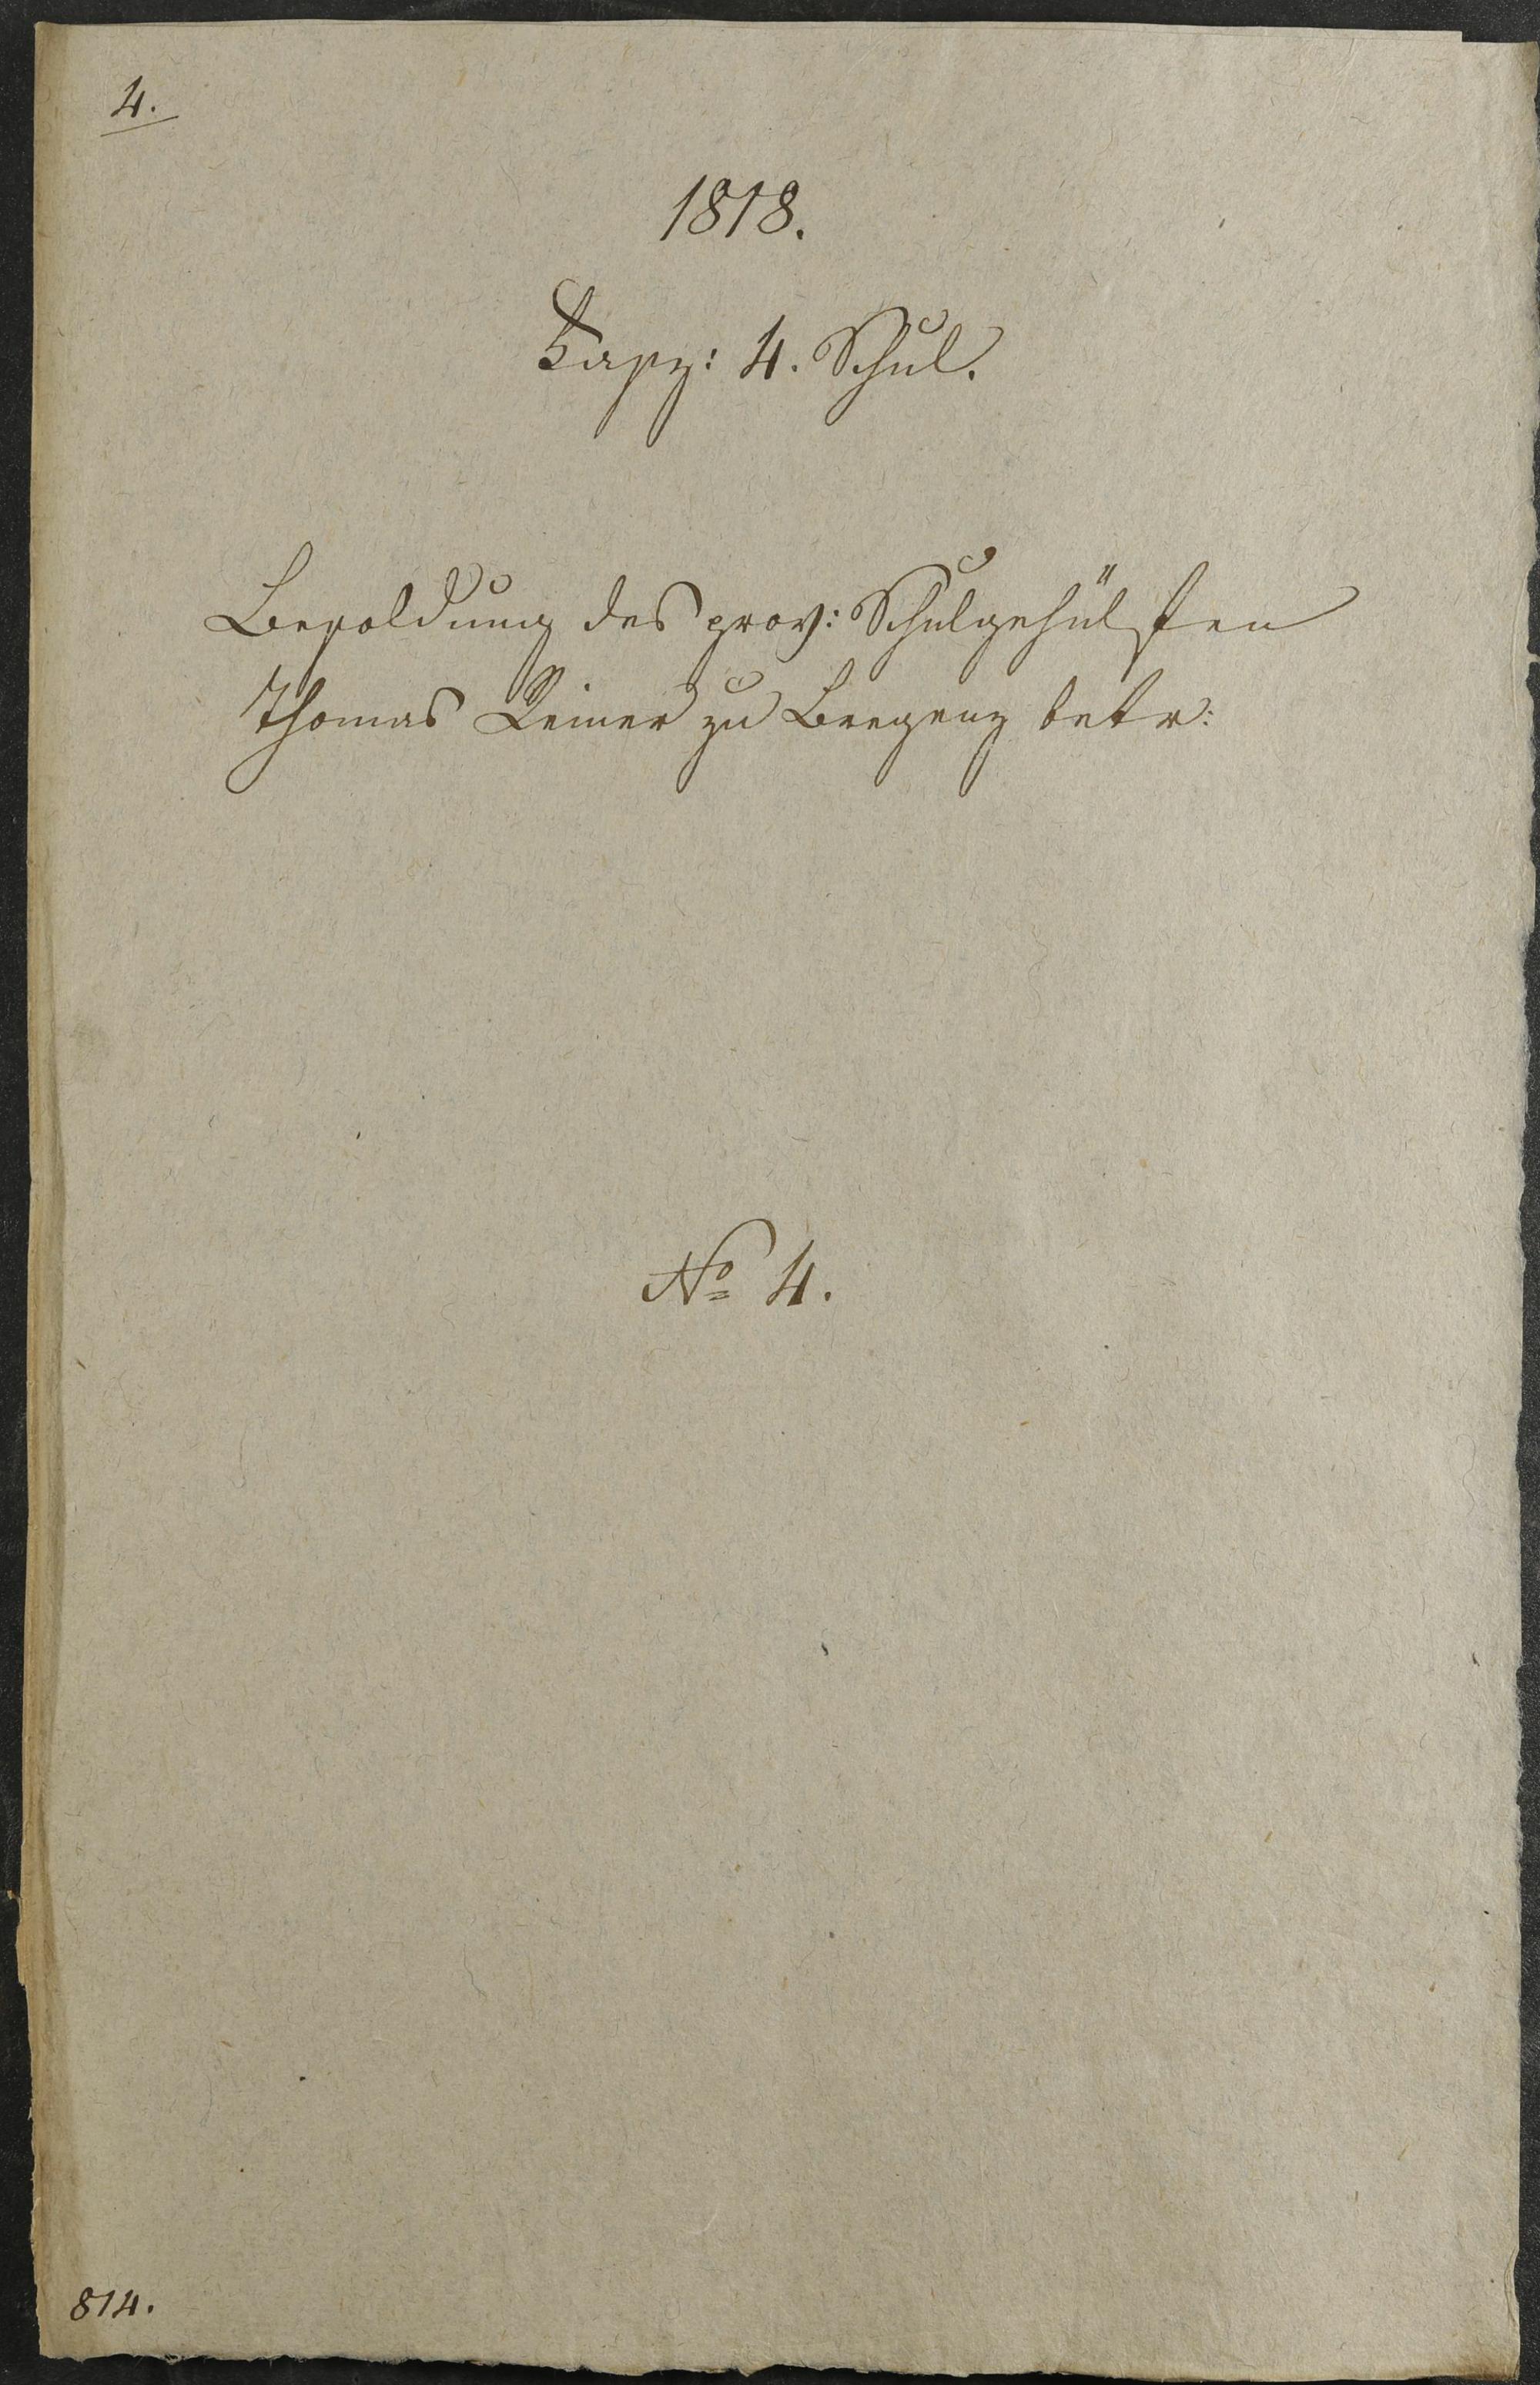 4.
1818.
Faszz: 4. Schul.
Besoldung des prov: Schulgehülfen
Thomas Reiner zu Bregenz betr:
No 4.
814.